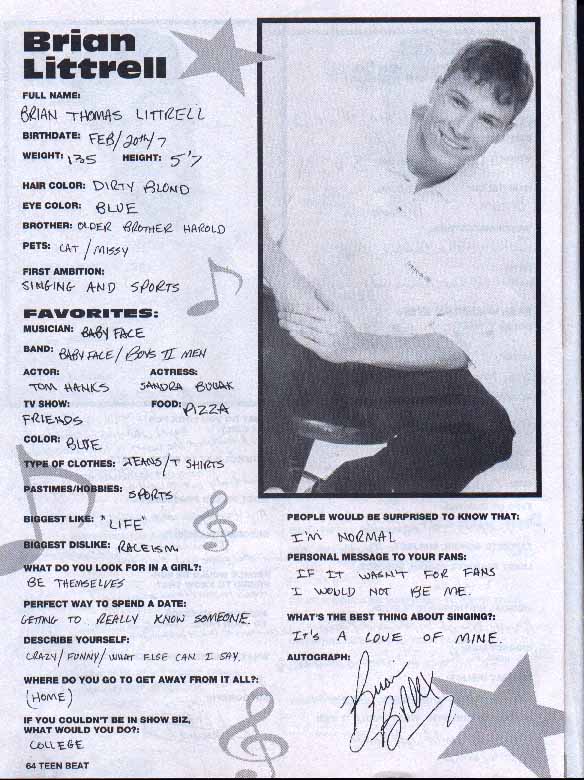 Brian
Littrell
FULL NAME:
BRIAN THOMAS LITTRELL
BIRTHDATE: FEB/20th/7
WEIGHT: 135 HEIGHT: 5'7
HAIR COLOR: DIRTY BLOND
EYE COLOR: BLUE
BROTHER: OLDER BROTHER HAROLD
PETS: CAT / MISSY
FIRST AMBITION:
SINGING AND SPORTS
FAVORITES:
MUSICIAN: BABY FACE
BAND: BABY FACE / BOYS II MEN
ACTOR: ACTRESS:
TOM HANKS SANDRA BULLAK
TV SHOW: FOOD: PIZZA
FRIENDS
COLOR: BLUE
TYPE OF CLOTHES: JEANS/T SHIRTS
PASTIMES/HOBBIES: SPORTS
BIGGEST LIKE: "LIFE"
BIGGEST DISLIKE: RACEISM
WHAT DO YOU LOOK FOR IN A GIRL?:
BE THEMSELVES
PERFECT WAY TO SPEND A DATE:
GETING TO REALLY KNOW SOMEONE.
DESCRIBE YOURSELF:
CRAZY/FUNNY/WHAT ELSE CAN I SAY.
WHERE DO YOU GO TO GET AWAY FROM IT ALL?:
(HOME)
IF YOU COULDN'T BE IN SHOW BIZ,
WHAT WOULD YOU DO?:
COLLEGE
64 TEEN BEAT
PEOPLE WOULD BE SURPRISED TO KNOW THAT:
I'M NORMAL
PERSONAL MESSAGE TO YOUR FANS:
IF IT WASN'T FOR FANS
I WOULD NOT BE ME.
WHAT'S THE BEST THING ABOUT SINGING?:
IT'S A LOVE OF MINE.
AUTOGRAPH: Brian